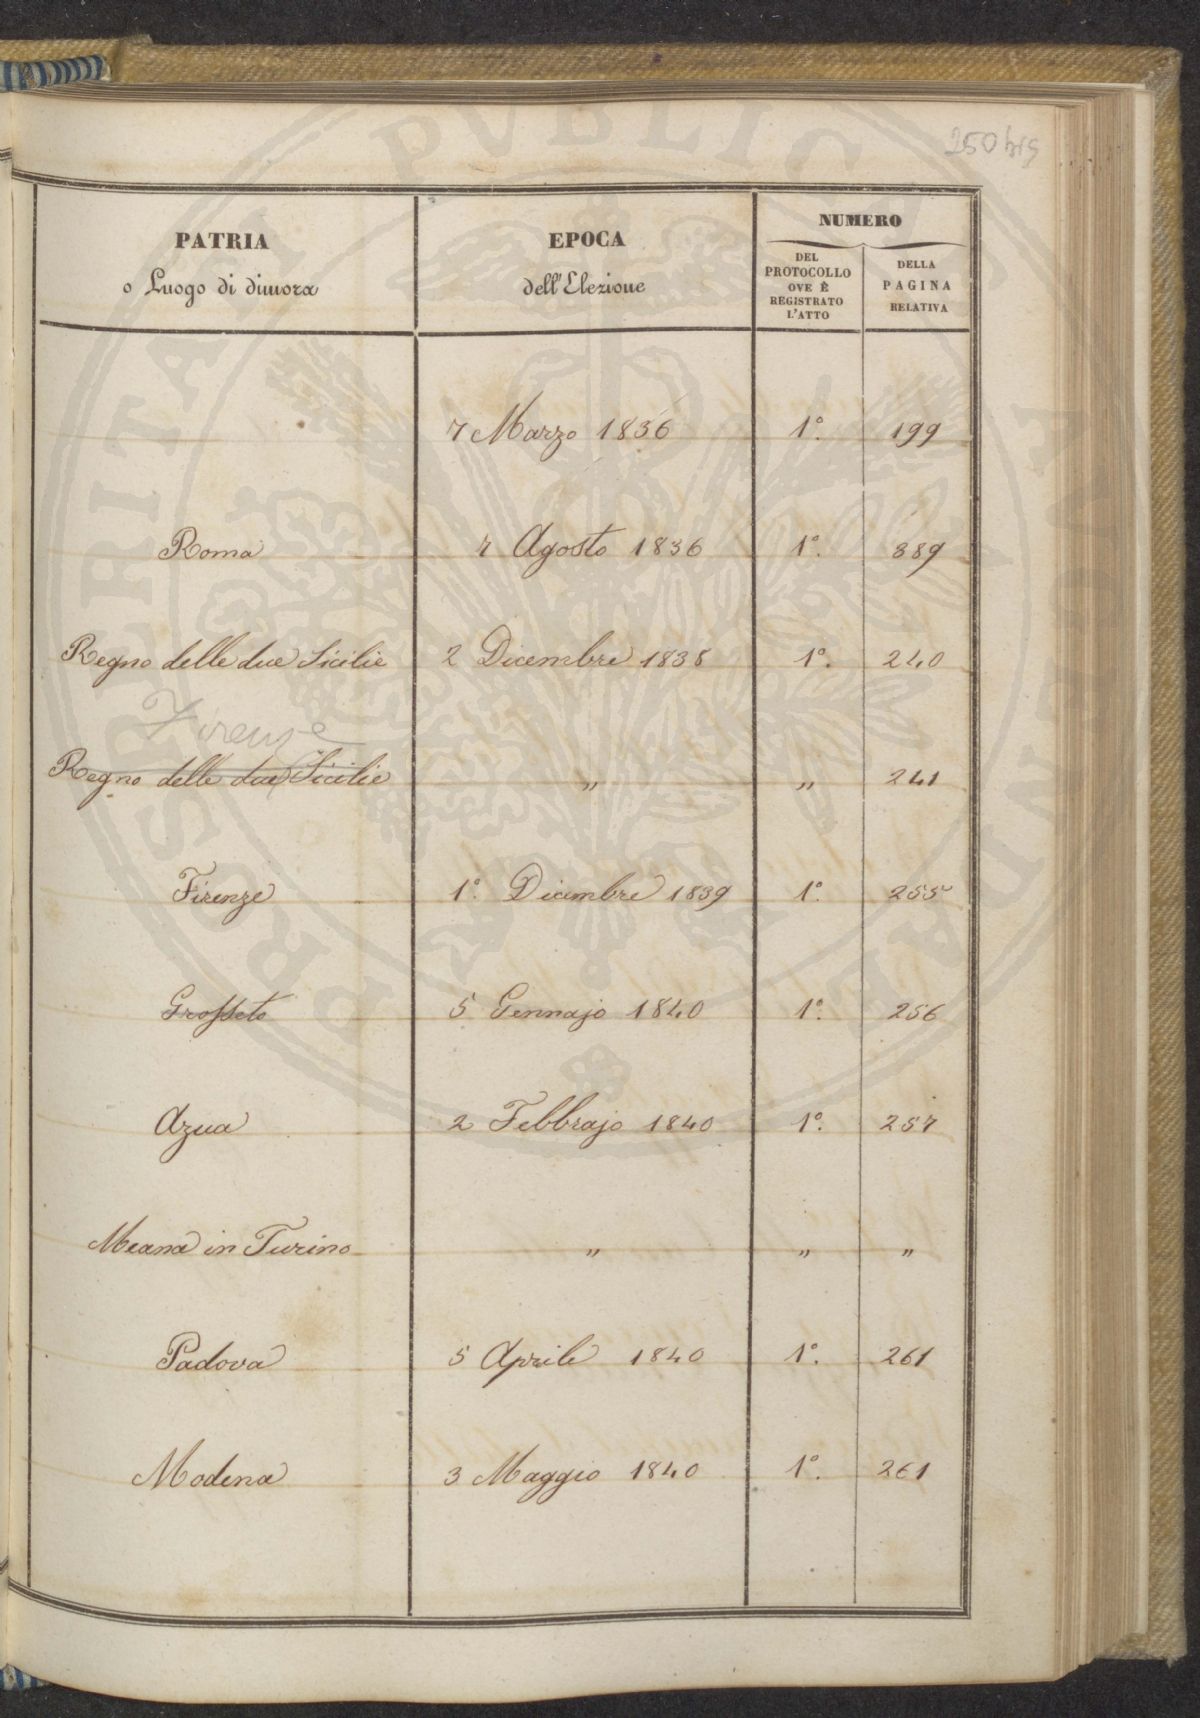 250 bis
PATRIA
o Luogo di dimora
EPOCA
dell'Elezione
NUMERO
DEL
PROTOCOLLO
OVE È
REGISTRATO
L'ATTO
DELLA
PAGINA
RELATIVA
7 Marzo 1836 1º. 199
Roma 7 Agosto 1836 1º. 889
Regno delle due Sicilie 2 Dicembre 1838 1º. 240
Firenze
Regno delle due Sicilie „ „ 241
Firenze 1º. Dicembre 1839 1º. 255
Grosseto 5 Gennajo 1840 1º. 256
Azua 2 Febbrajo 1840 1º. 257
Meana in Turino „ „ „
Padova 5 Aprile 1840 1º. 261
Modena 3 Maggio 1840 1º. 261